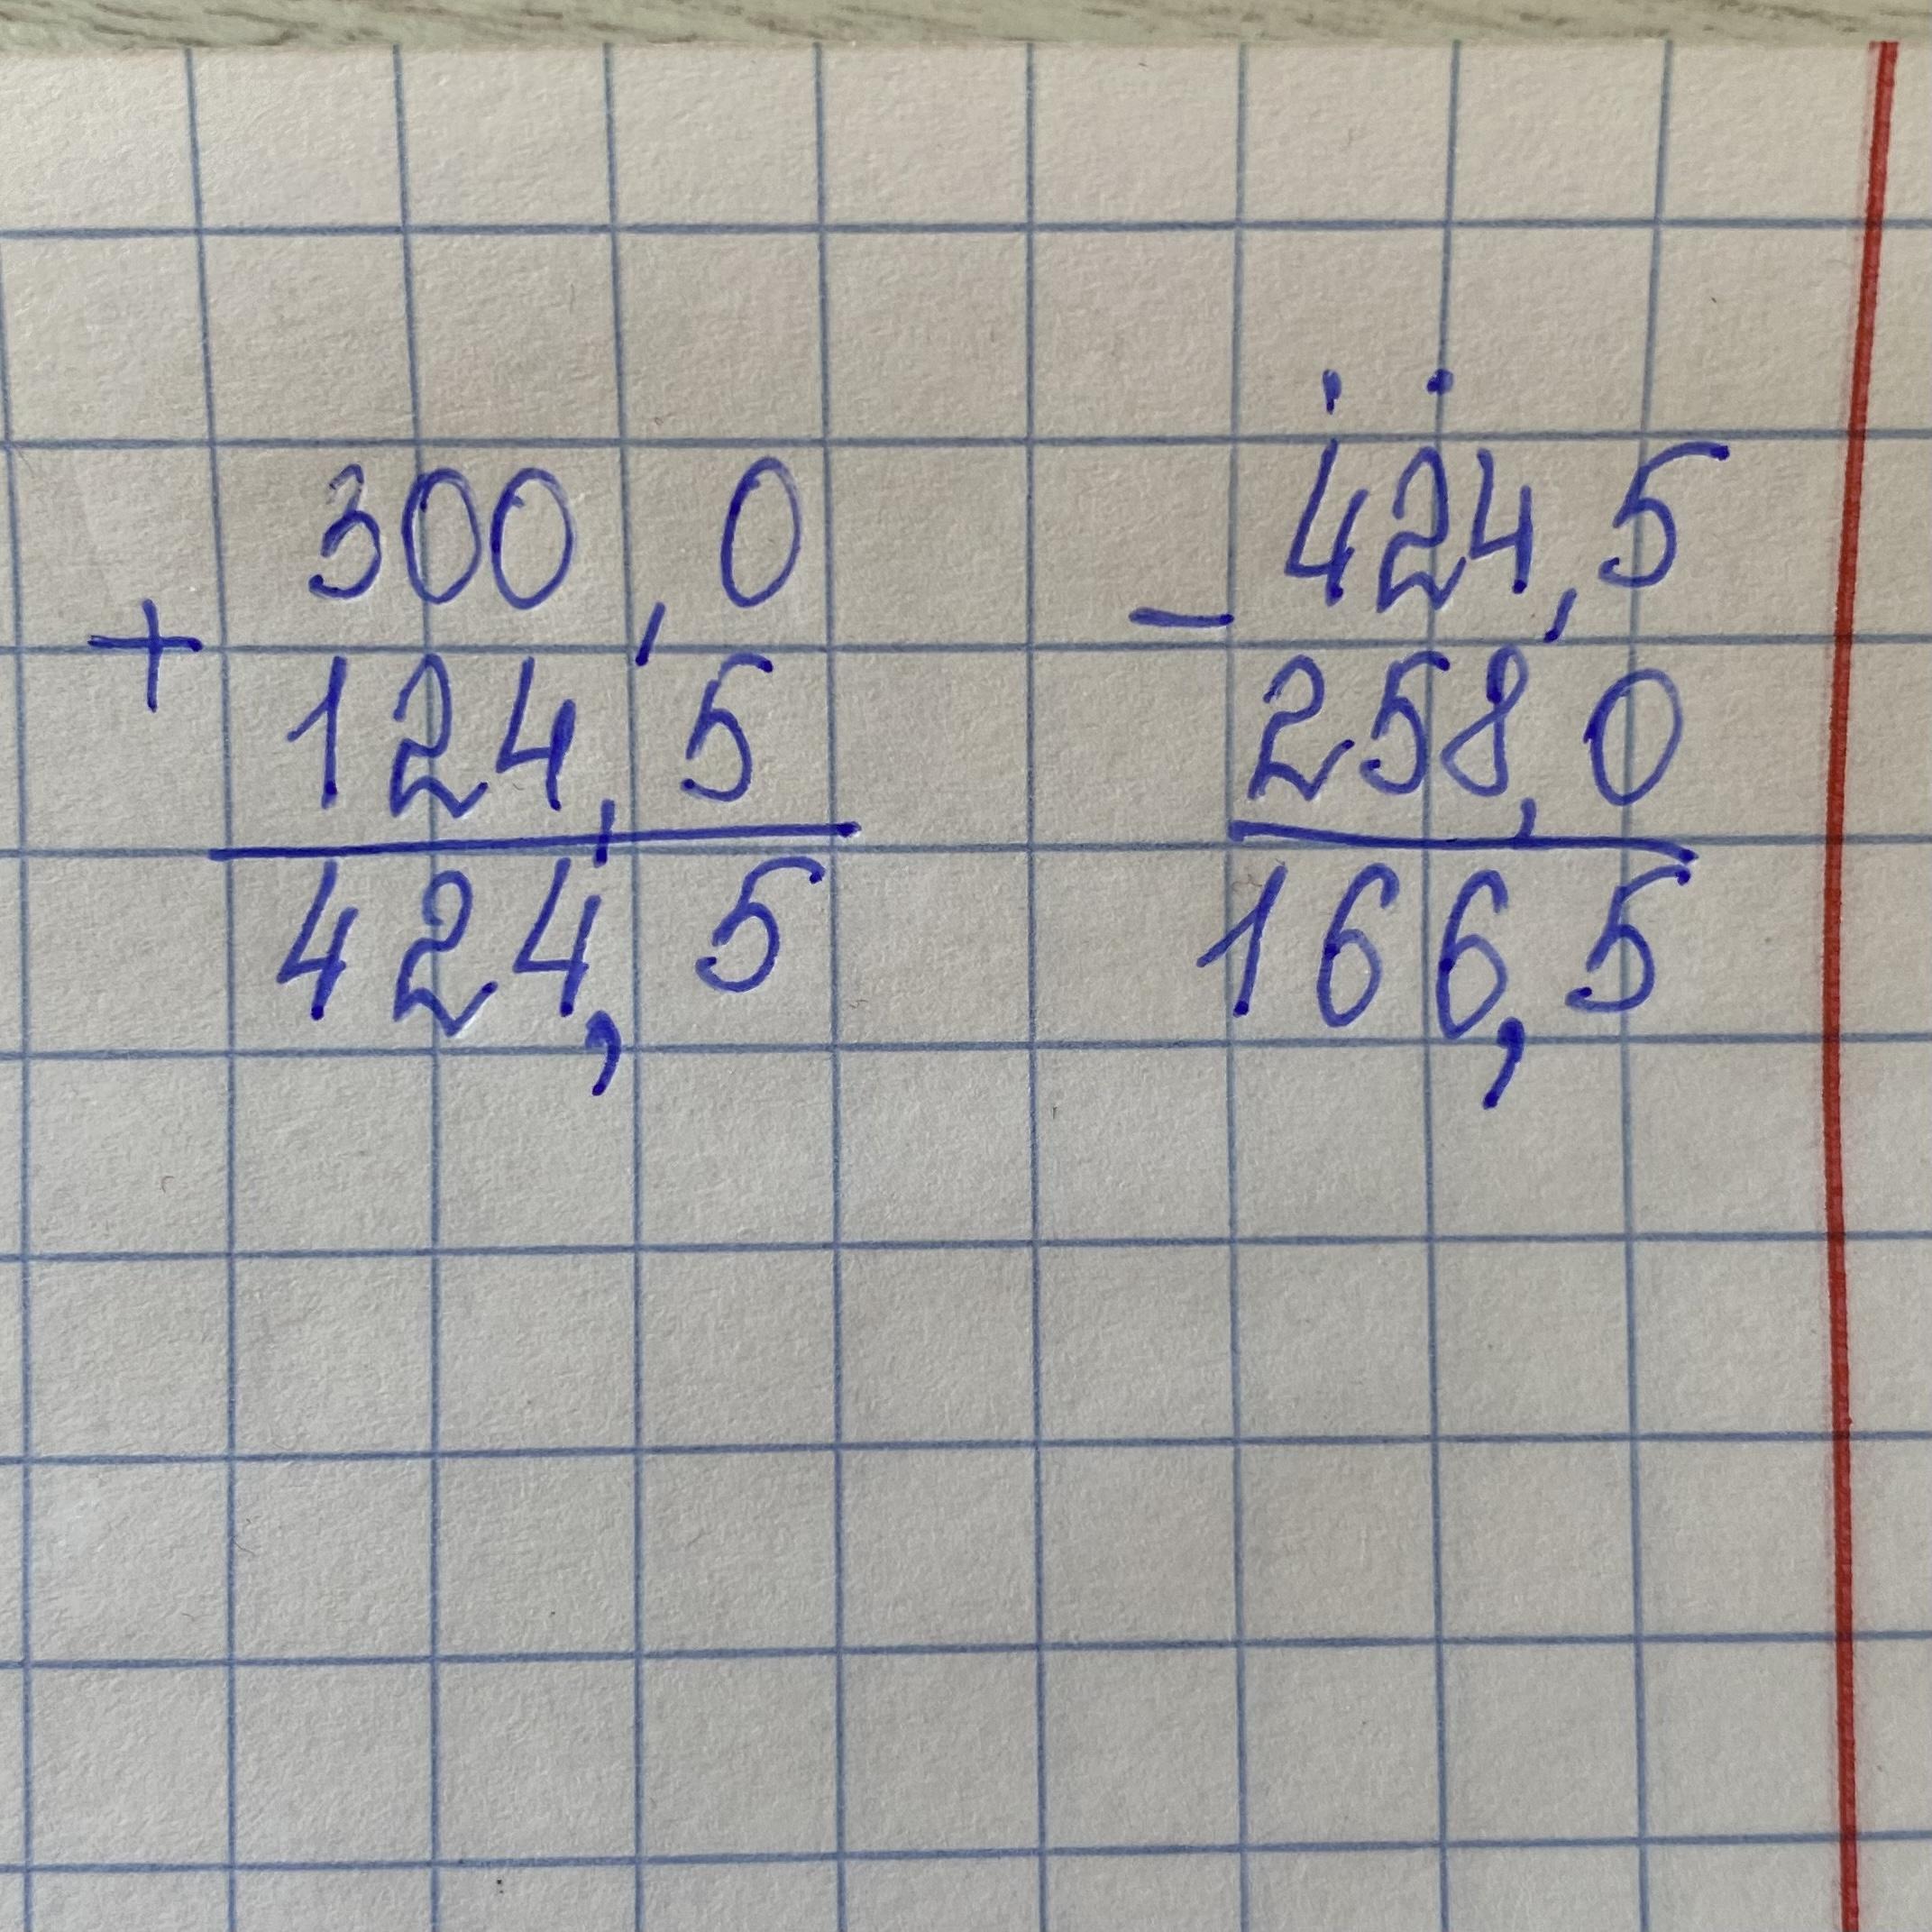 300,0
+
124,5
424,5
424,5
-
258,0
166,5